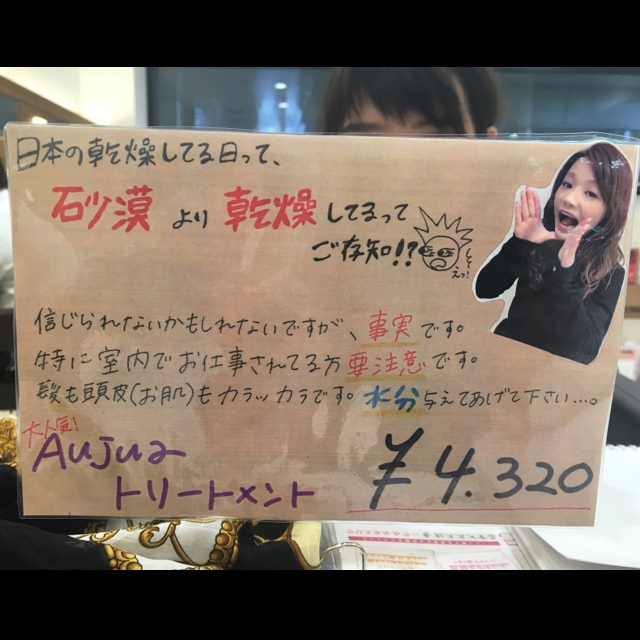 日本の乾燥してる日って、
砂漠より乾燥してるって
ご存知!?
信じられないかもしれないですが、事実です。
特に室内でお仕事されてる方要注意です。
髪も頭皮(お肌)もカラッカラです。水分与えてあげて下さい…。
大人気!
Aujua
トリートメント
¥4.320